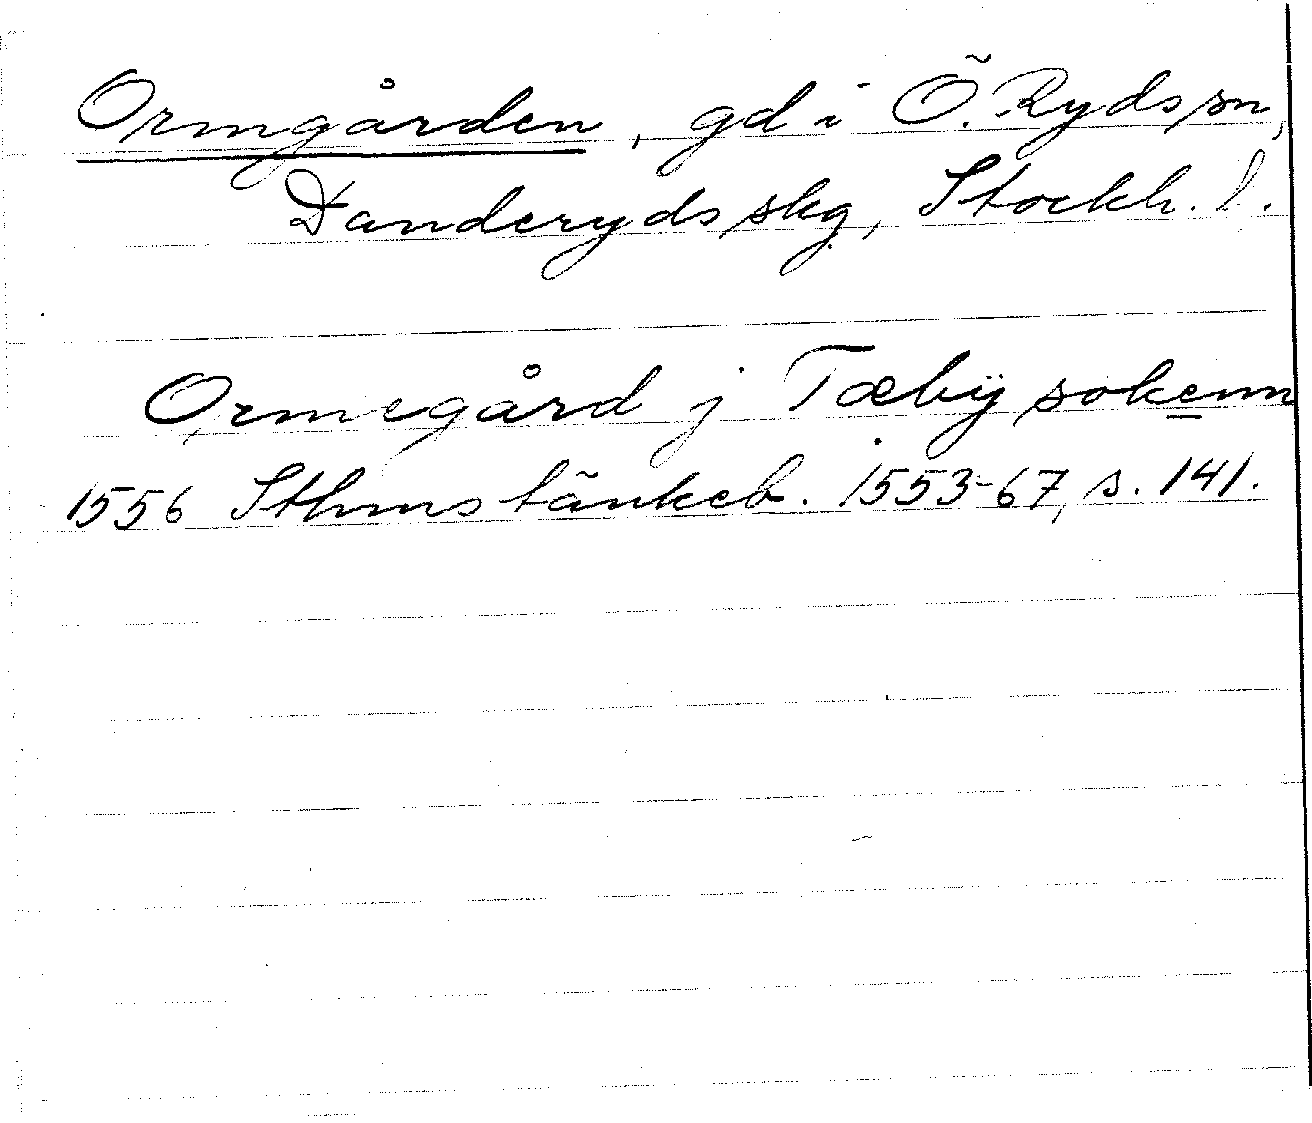 Ormgården, gd i Ö. Ryds sn,
Danderyds skg, Stockh. l.
Ormegård j Tæbÿ sokenn
1556 Sthms tänkeb. 1553-67, s. 141.